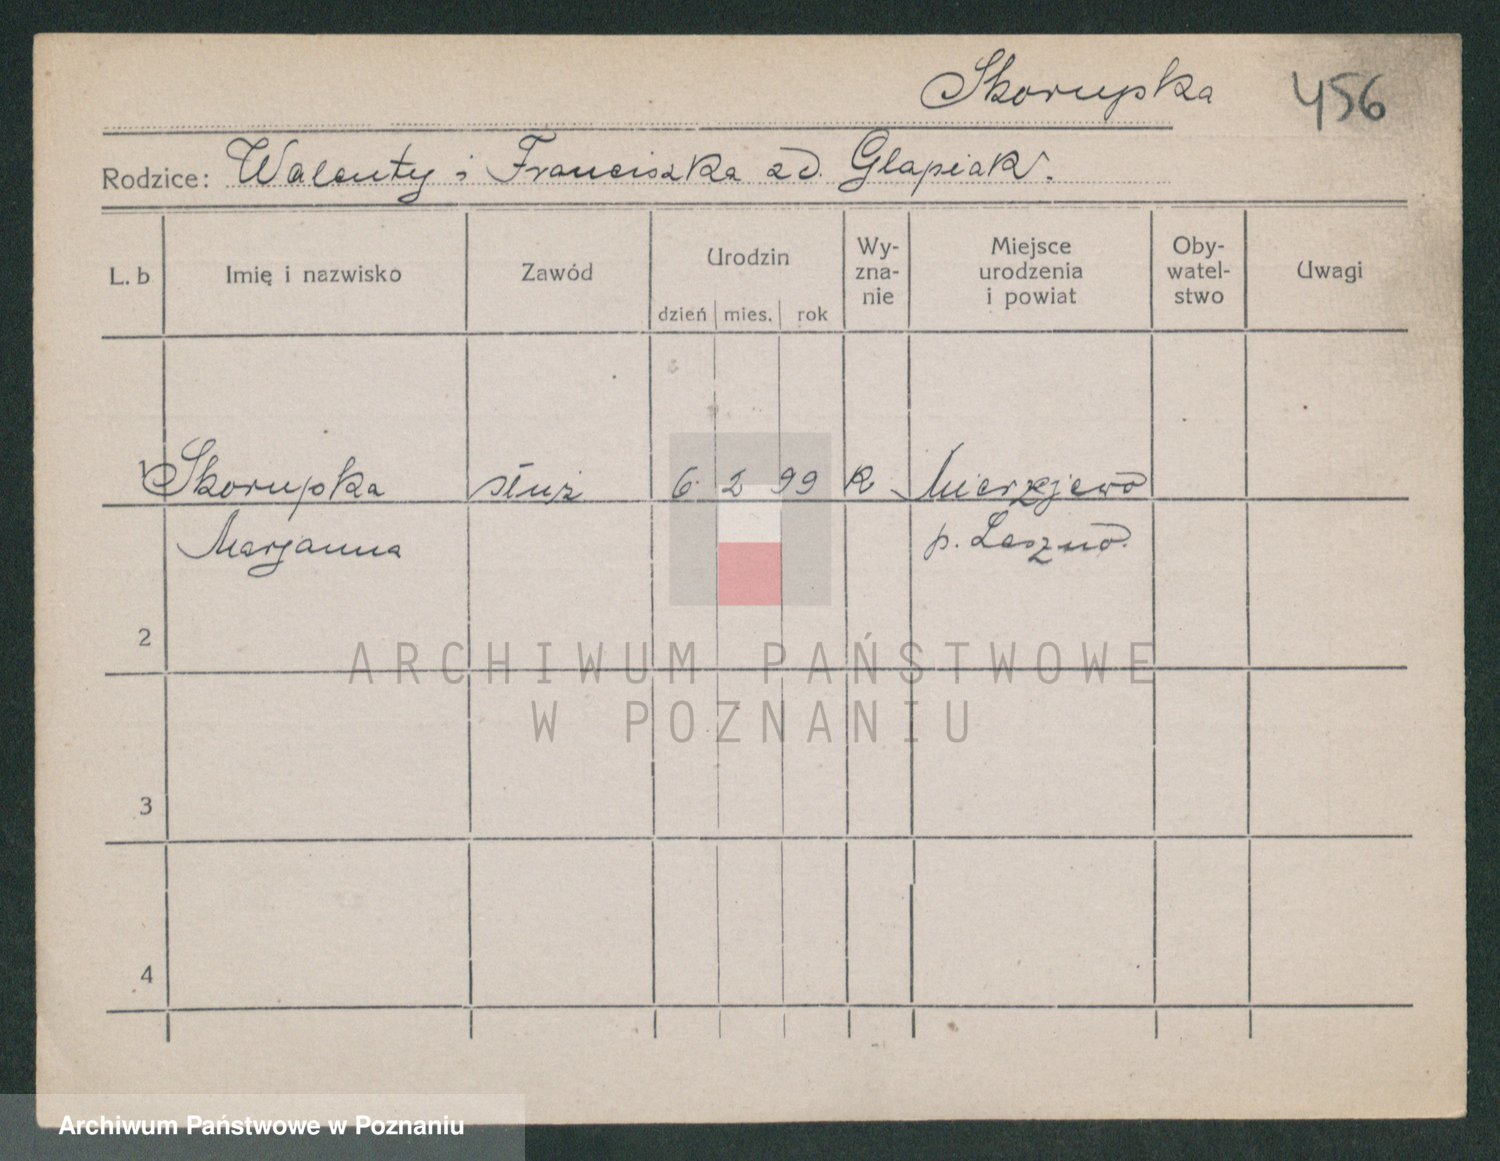 Skorupka 456
Rodzice: Walenty i Franciszka zd. Glapiak.
L. b Imię i nazwisko Zawód Urodzin dzień mies. rok Wy-zna-nie Miejsce urodzenia i powiat Oby-watel-stwo Uwagi
1 Skorupka służ 6. 2 99 k Mierzejewo
Marjanna p. Leszno.
2
3
4
ARCHIWUM PAŃSTWOWE
W POZNANIU
Archiwum Państwowe w Poznaniu